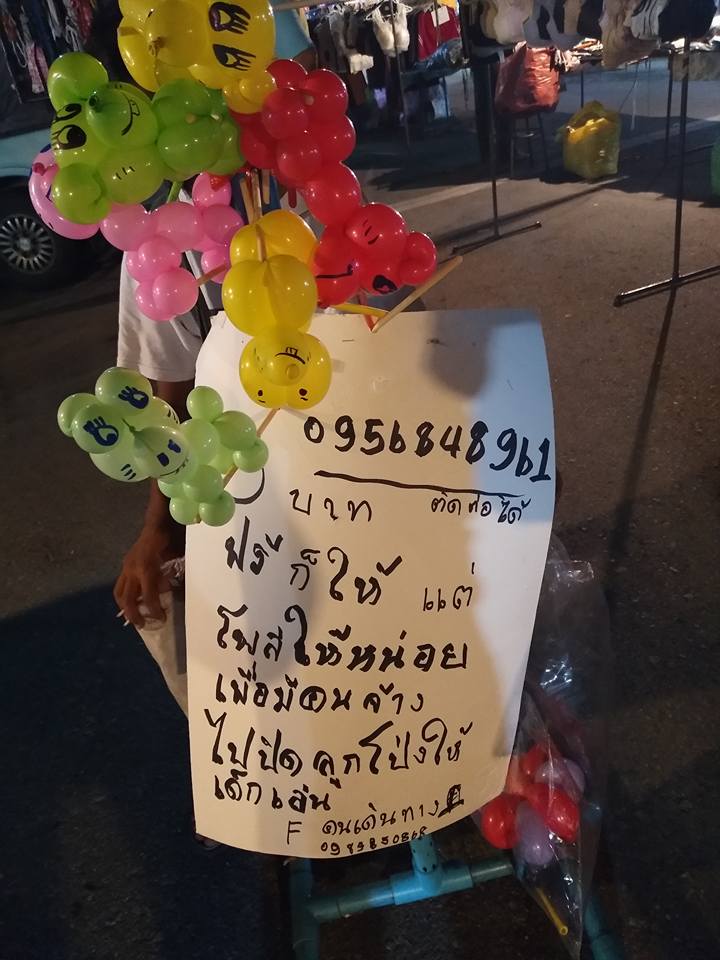 0956848961
บาท ติดต่อได้
ฟรีก็ให้ แต่
โพสให้หน่อย
เผื่อมีคนจ้าง
ไปบิดลูกโป่งให้
เด็กเล่น
F คนเดินทาง